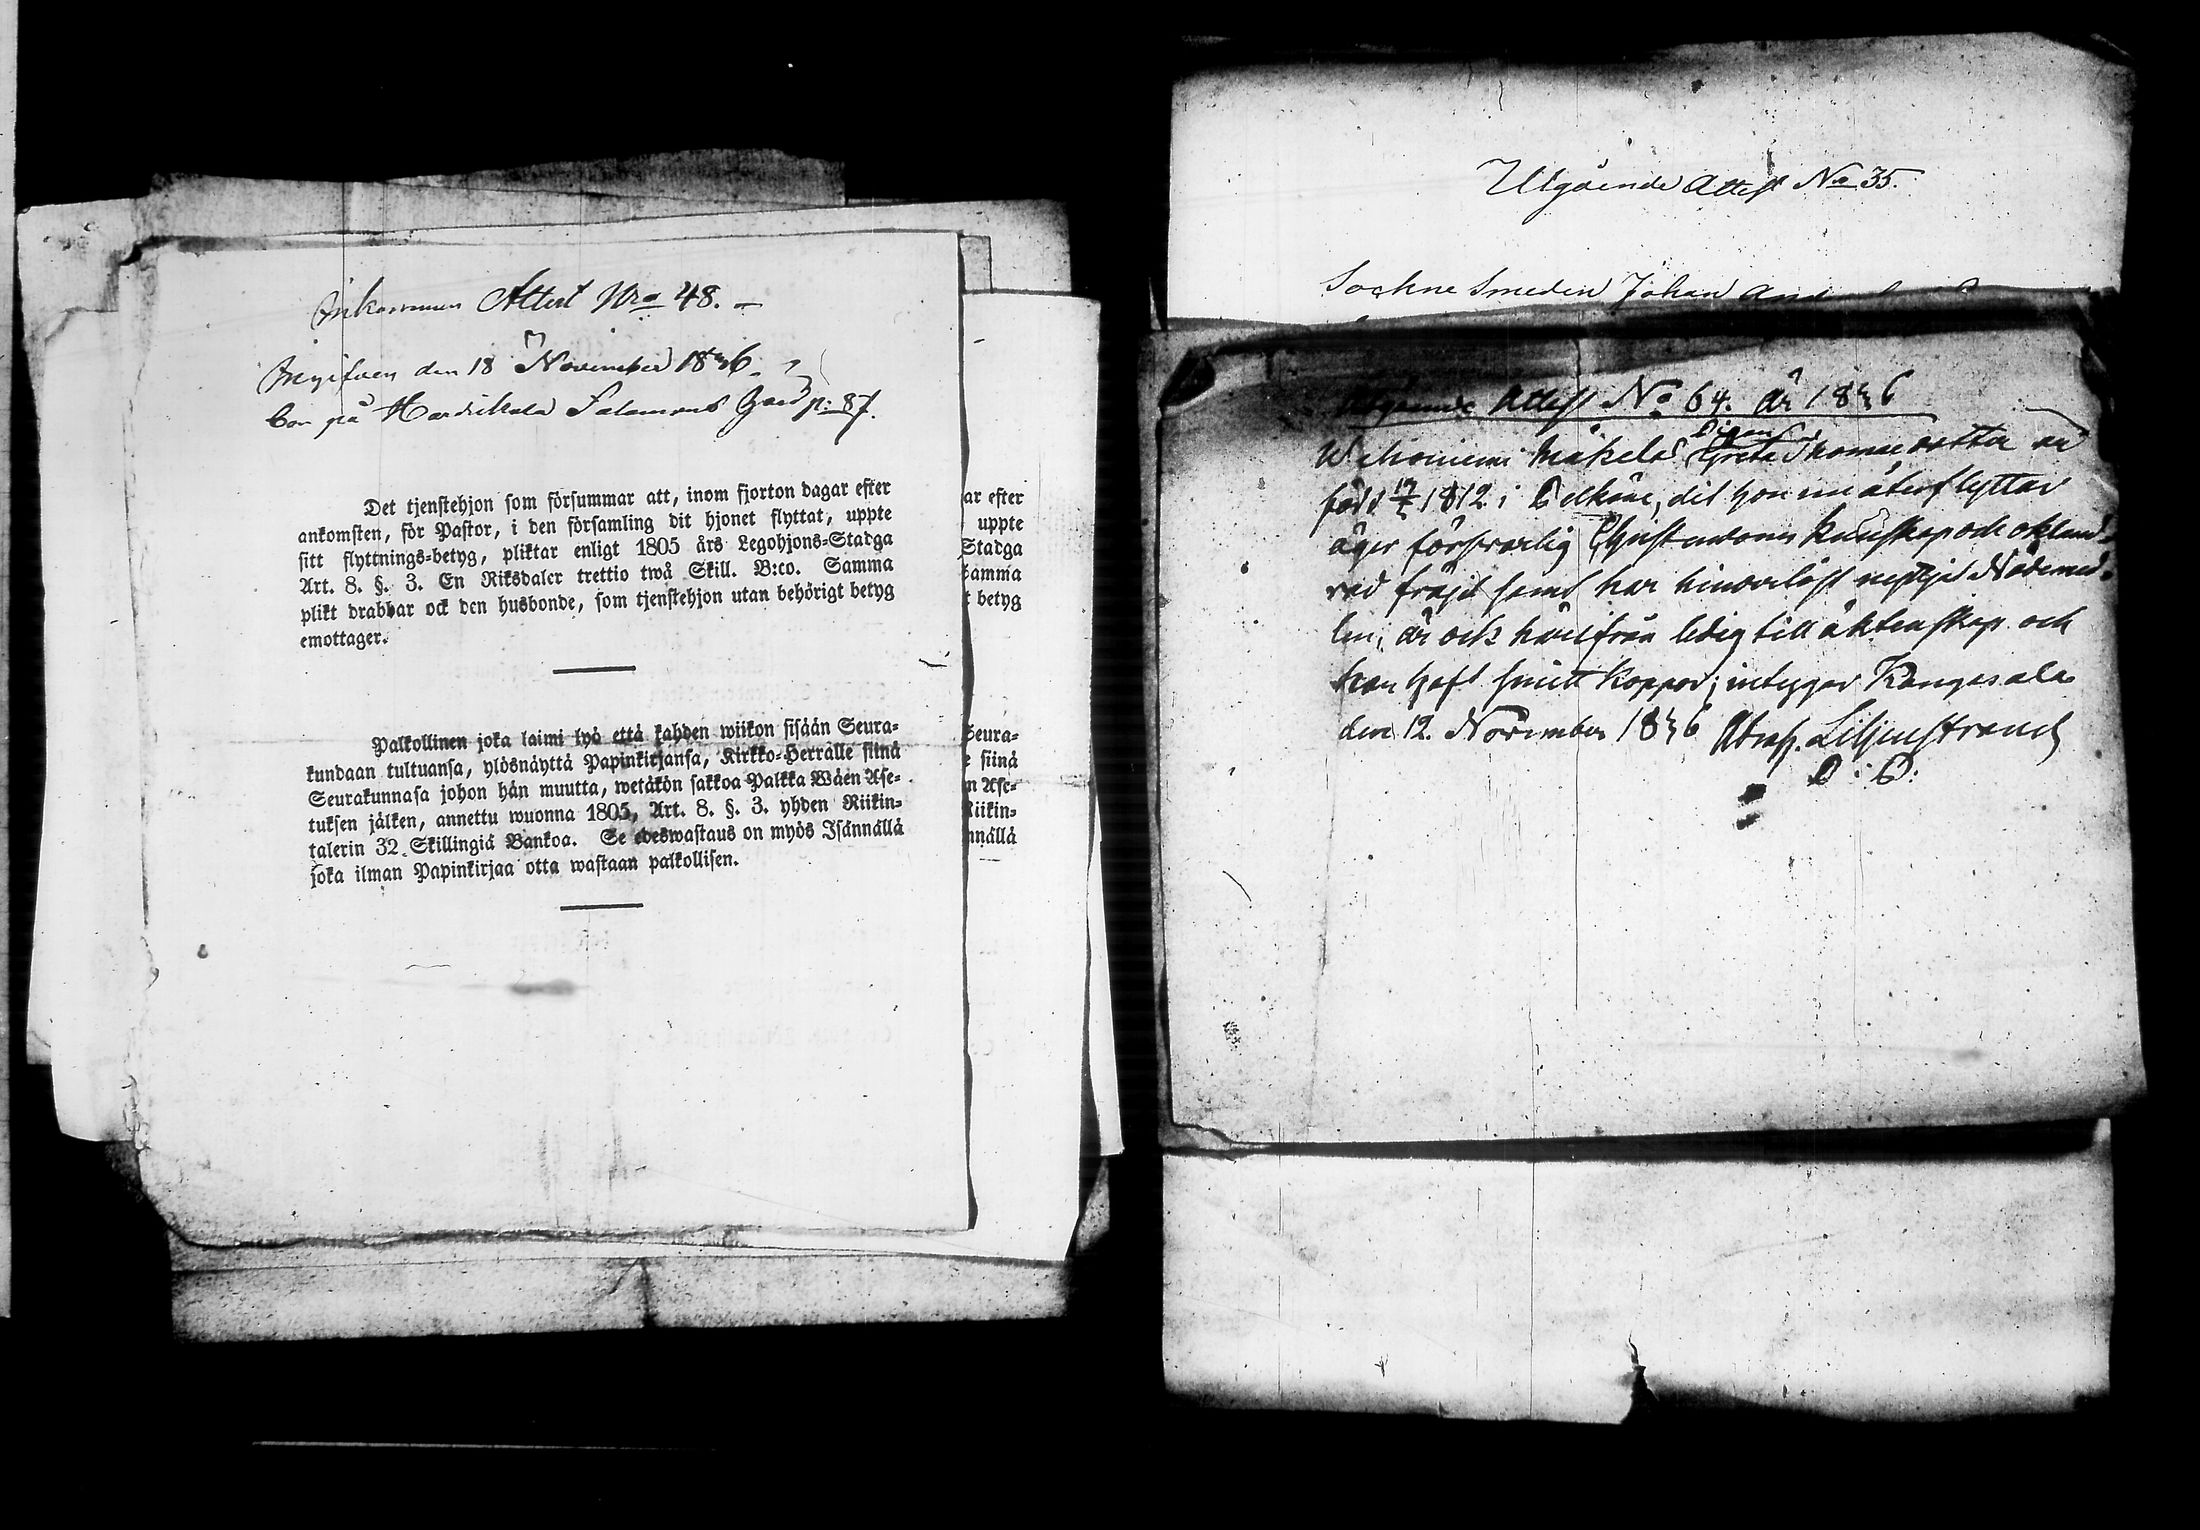 Inkommen Attest Nro 48. –
Ingifven den 18 November 1836.
bor på Hardikala Salamons Gård p: 87.
Det tjenstehjon som försummar att, inom fjorton dagar efter
ankomsten, för Pastor, i den församling dit hjonet flyttat, uppte
sitt flyttnings-betyg, pliktar enligt 1805 års Legohjons-Stadga
Art. 8. §. 3. En Riksdaler trettio twå Skill. B:co. Samma
plikt drabbar ock den husbonde, som tjenstehjon utan behörigt betyg
emottager.
Palkollinen joka laimi lyö että kahden wiikon sisään Seura-
kundaan tultuansa, ylösnäyttä Papinkirjansa, Kirkko-Herralle siinä
Seurakunnasa johon hän muutta, wetäkön sakkoa Palkka Wäen Ase-
tuksen jälken, annettu wuonna 1805, Art. 8. §. 3. yhden Riikin-
talerin 32 Skillingiä Bankoa. Se edeswastaus on myös Isännällä
joka ilman Papinkirjaa otta wastaan palkollisen.
ar efter
uppte
Stadga
Samma
t betyg
Seura-
siinä
n Ase-
Riikin-
nnällä
Utgående Attest No 35.
Sockne Smeden Johan
Utgående Attest No 64. år 1836
Wehoniemi Mäkelä Pigan Greta Thomaedotter är
född 17/7 1812 i Pelkäne, dit hon nu återflyttar
äger försvarlig Christendoms kunskap och okland-
rad frägd samt har hinderlöst nyttjat Nådemed-
len; är ock härifrån ledig till äktenskap och
har haft smitt koppor; intygar Kangasala
den 12. November 1836 Abrah. Liljenstrand